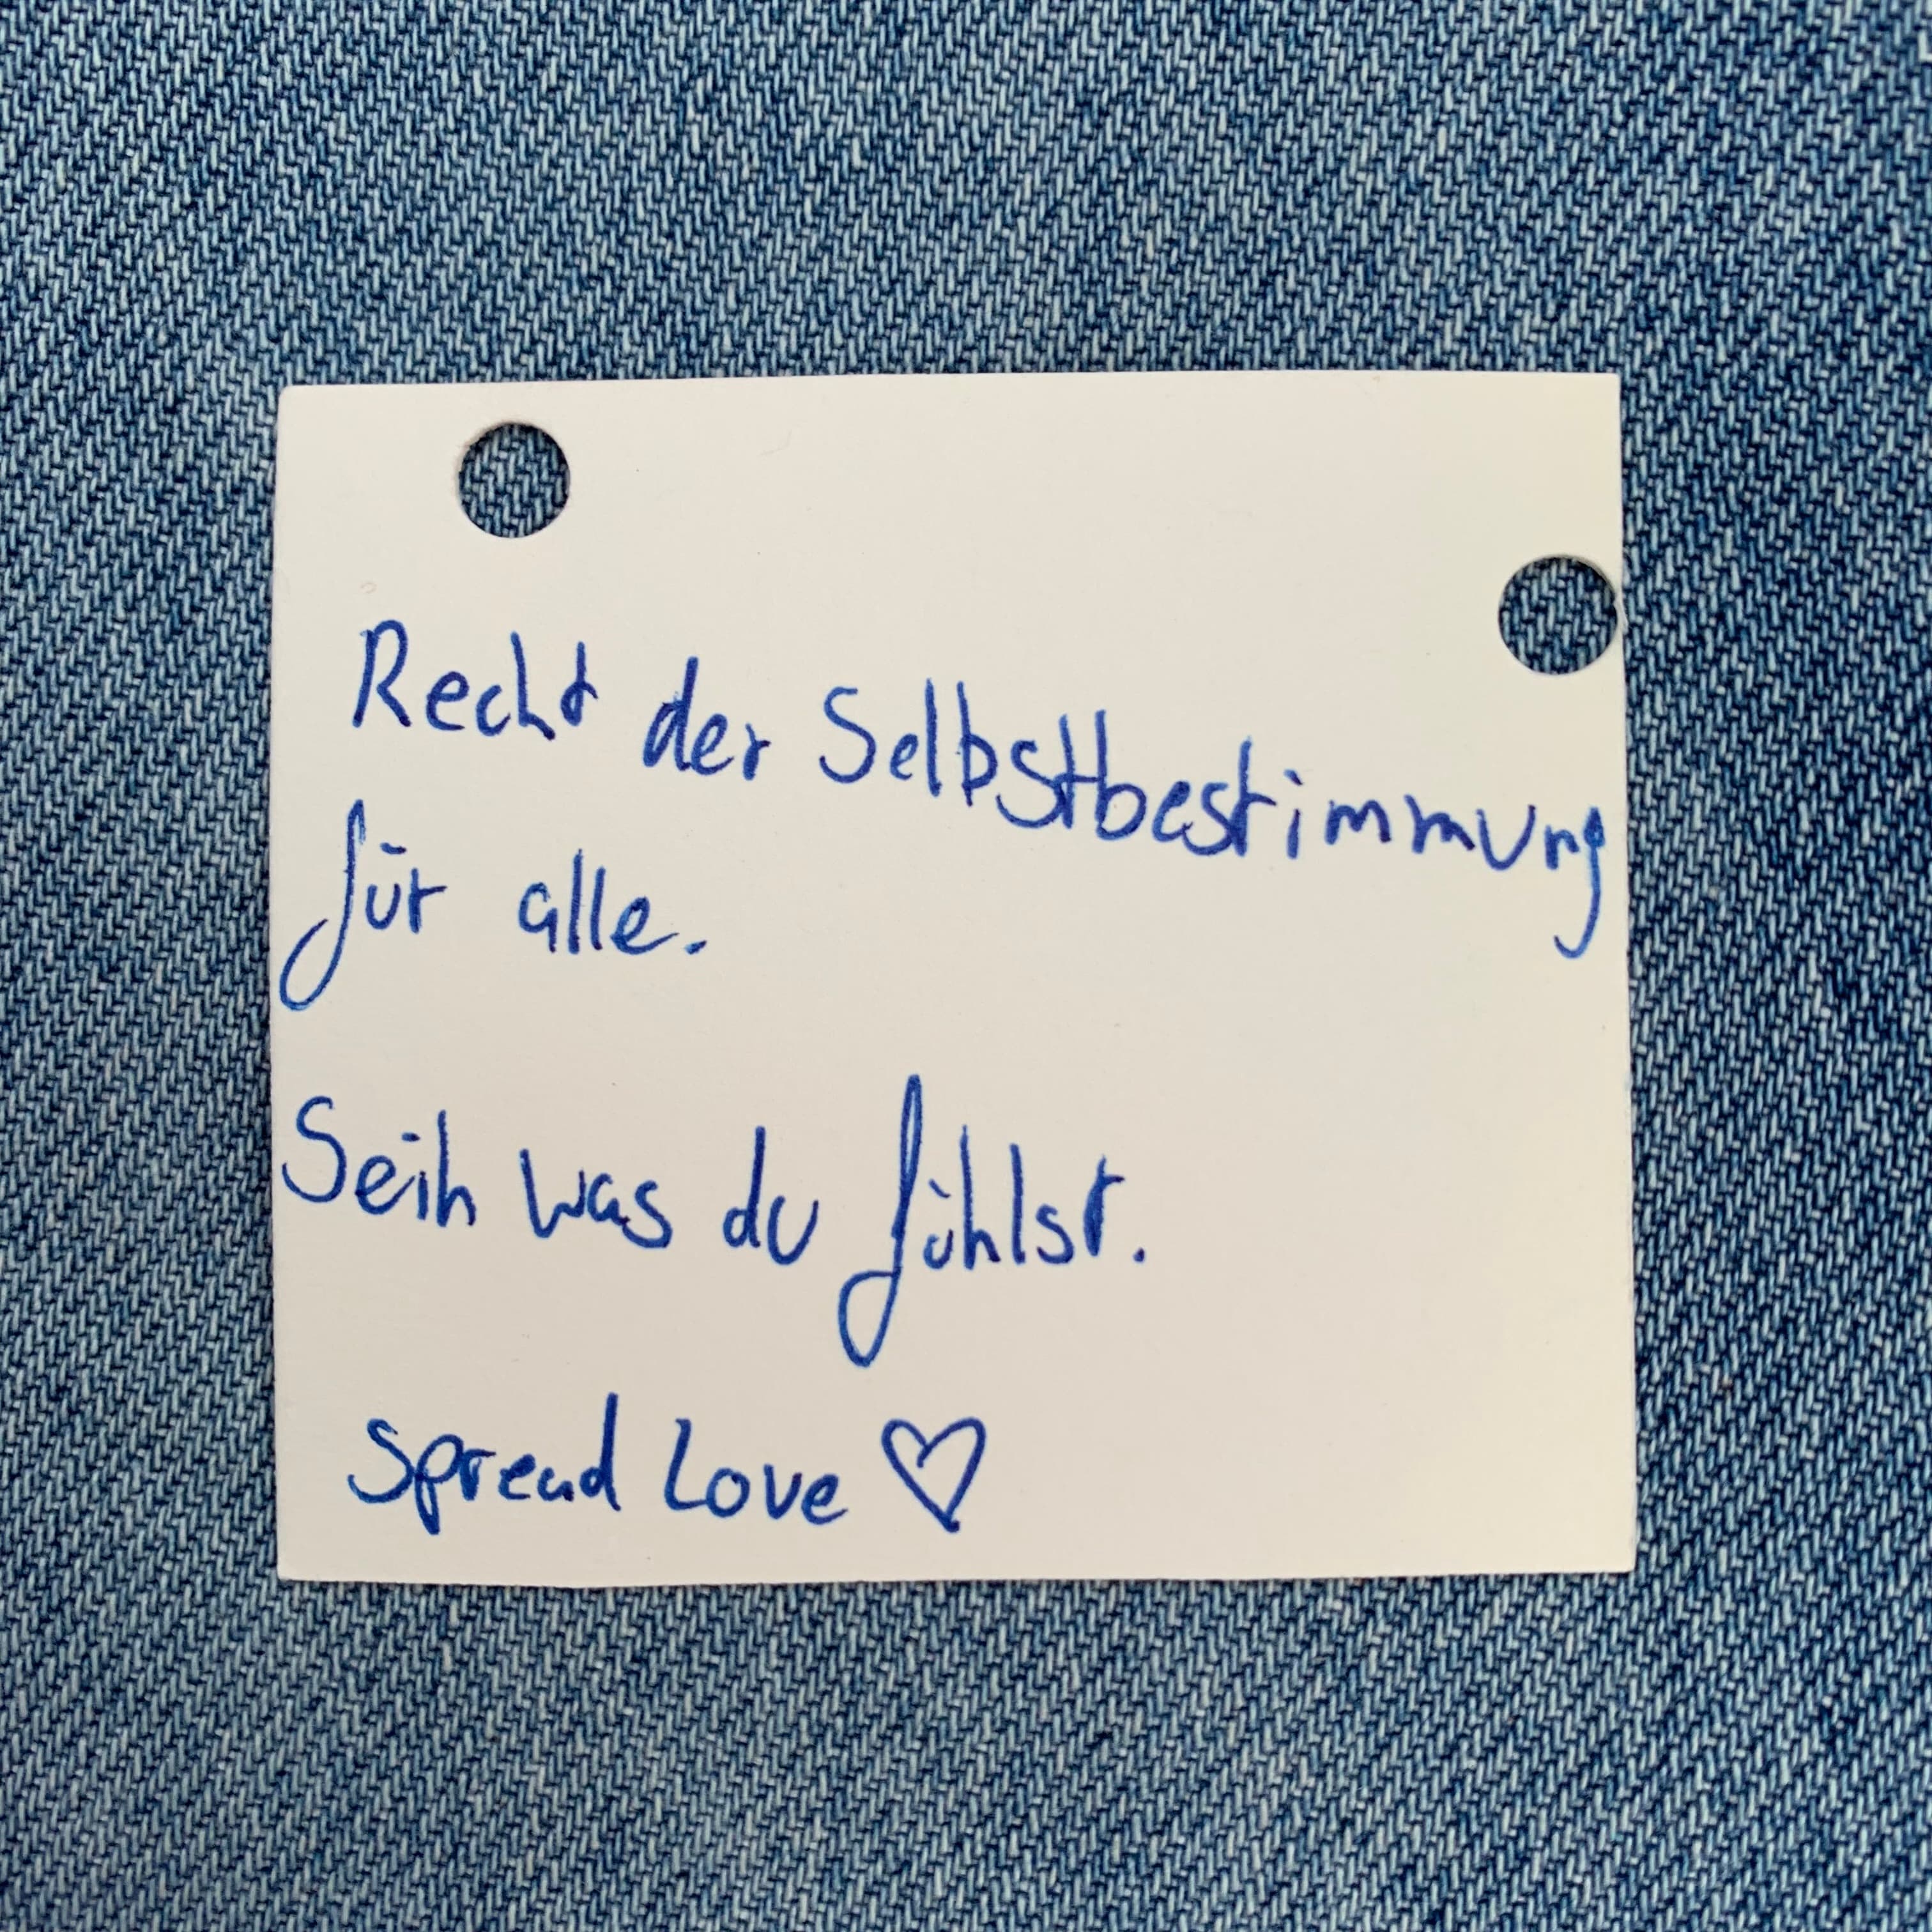 Recht der Selbstbestimmung
für alle.
Seih was du fühlst.
Spread Love ♡